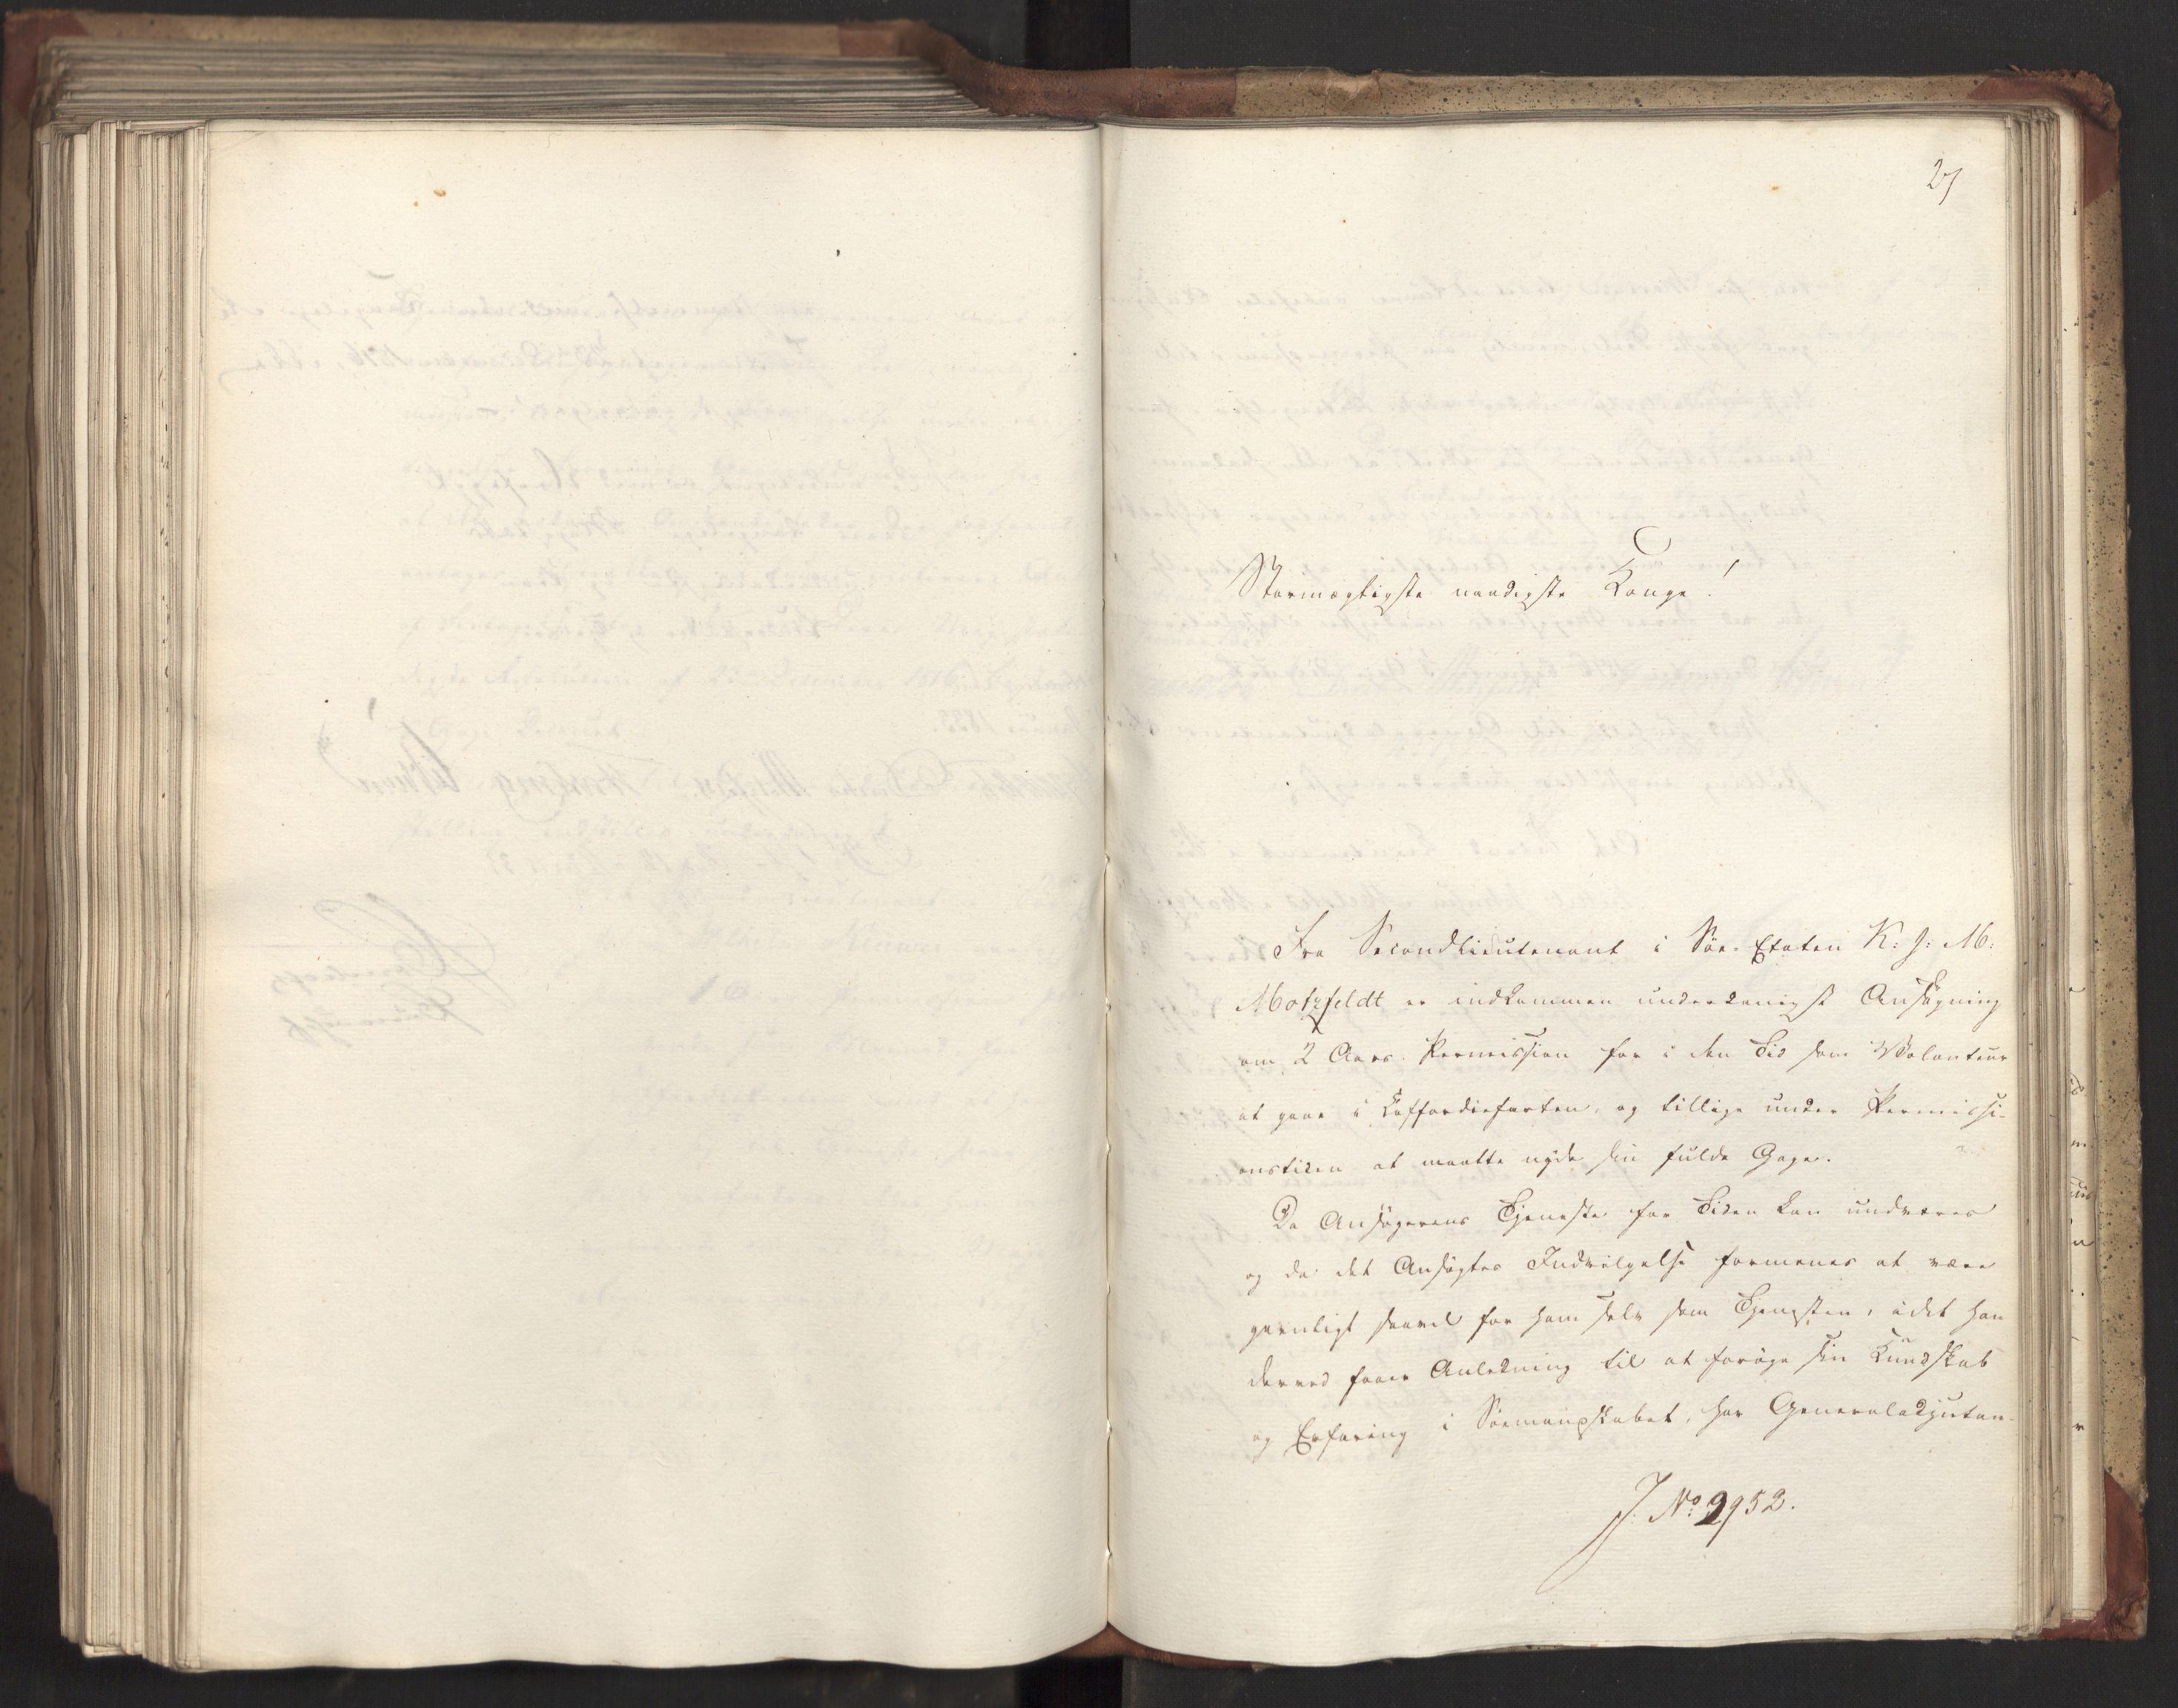 27
Stormægtigste naadigste Konge!
Fra Secondlieutenant i Söe-Etaten K: J: M:
Motzfeldt er indkommen underdanigst Ansøgning
om 2 Aars Permission for i den Tid som Volonteur
at gaae i Koffardiefarten, og tillige under Permissi-
onstiden at maatte nyde sin fulde Gage.
Da Ansøgerens Tjeneste for Tiden kan undværes
og da det Ansøgtes Indvilgelse formenes at være
gavnligt saavel for ham selv som Tjenesten, idet han
derved faaer Anledning til at forøge sin Kundskab
og Erfaring i Sömandskabet, har Generaladjutan-
J. No 2952.